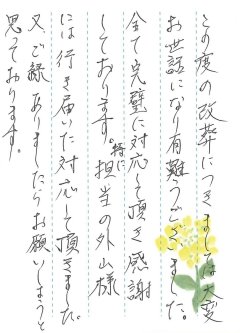 この度の改葬につきましては大変
お世話になり有難うございました。
全て完璧に対応して頂き感謝
しております。特に担当の外山様
には行き届いた対応して頂きました。
又ご縁ありましたらお願いしようと
思っております。